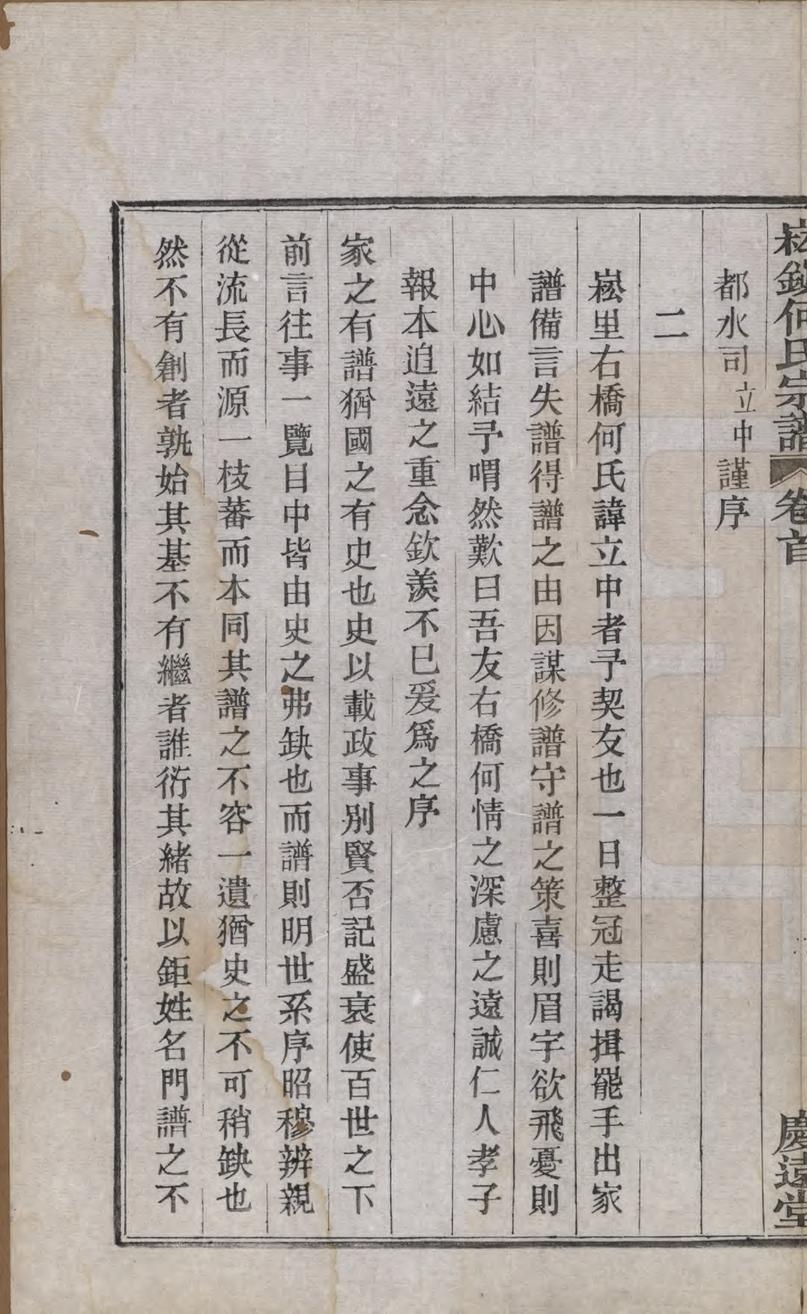 崧鎮何氏宗譜 卷首 慶遠堂
都水司立中謹序
二
崧里右橋何氏諱立中者予契友也一日整冠走謁揖罷手出家
譜備言失譜得譜之由因謀修譜守譜之策喜則眉宇欲飛憂則
中心如結予喟然歎曰吾友右橋何情之深慮之遠誠仁人孝子
報本追遠之重念欽羨不已爰爲之序
家之有譜猶國之有史也史以載政事別賢否記盛衰使百世之下
前言往事一覽目中皆由史之弗缺也而譜則明世系序昭穆辨親
從流長而源一枝蕃而本同其譜之不容一遺猶史之不可稍缺也
然不有創者孰始其基不有繼者誰衍其緒故以鉅姓名門譜之不